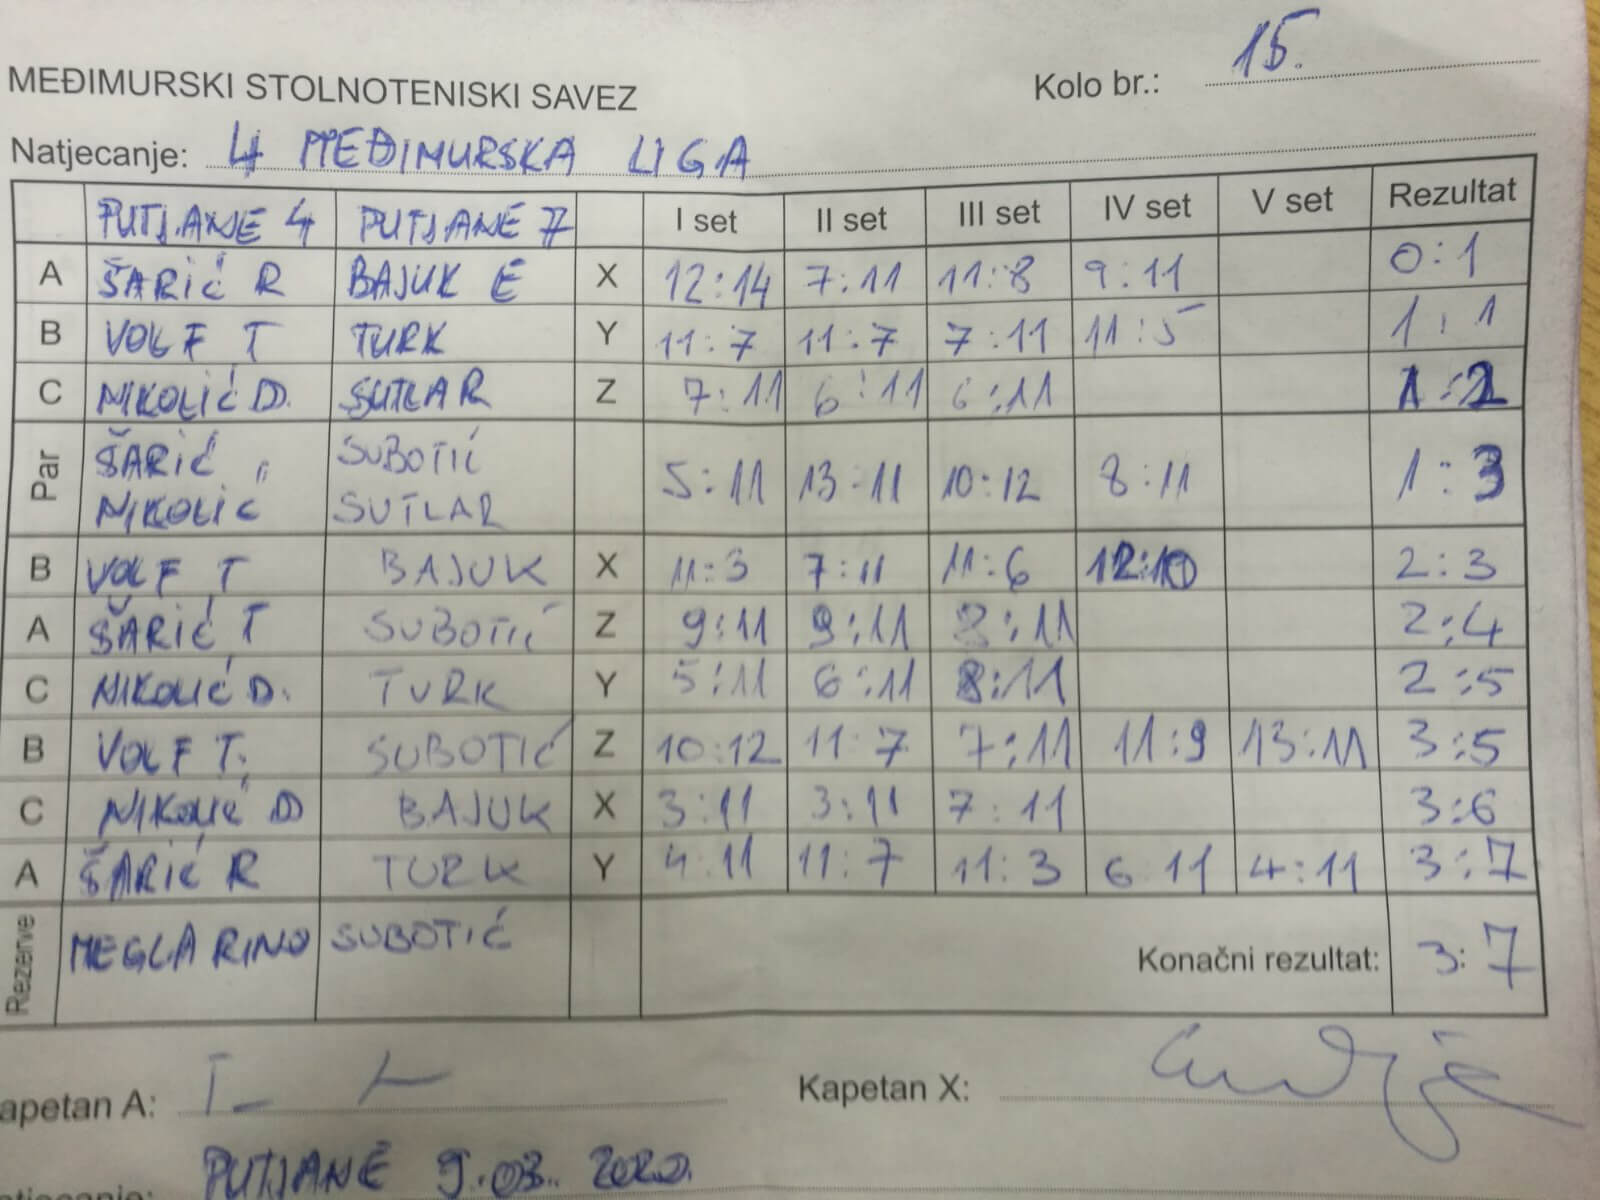 Kolo br.: 15.
MEĐIMURSKI STOLNOTENISKI SAVEZ
Natjecanje: 4 MEĐIMURSKA LIGA
PUTJANE 4 PUTJANE 7 I set II set III set IV set V set Rezultat
A ŠARIĆ R BAJUK E X 12:14 7:11 11:8 9:11 0:1
B VOLF T TURK Y 11:7 11:7 7:11 11:5 1:1
C NIKOLIĆ D. SUTLAR Z 7:11 6:11 6:11 1:2
Par ŠARIĆ SUBOTIĆ 5:11 13:11 10:12 8:11 1:3
NIKOLIĆ SUTLAR
B VOLF T BAJUK X 11:3 7:11 11:6 12:10 2:3
A ŠARIĆ T SUBOTIĆ Z 9:11 9:11 8:11 2:4
C NIKOLIĆ D. TURK Y 5:11 6:11 8:11 2:5
B VOLF T. SUBOTIĆ Z 10:12 11:7 7:11 11:9 13:11 3:5
C NIKOLIĆ D BAJUK X 3:11 3:11 7:11 3:6
A ŠARIĆ R TURK Y 4:11 11:7 11:3 6:11 4:11 3:7
Rezerve MEGLA RINO SUBOTIĆ Konačni rezultat: 3:7
apetan A: Kapetan X:
PUTJANE 9.03. 2020.